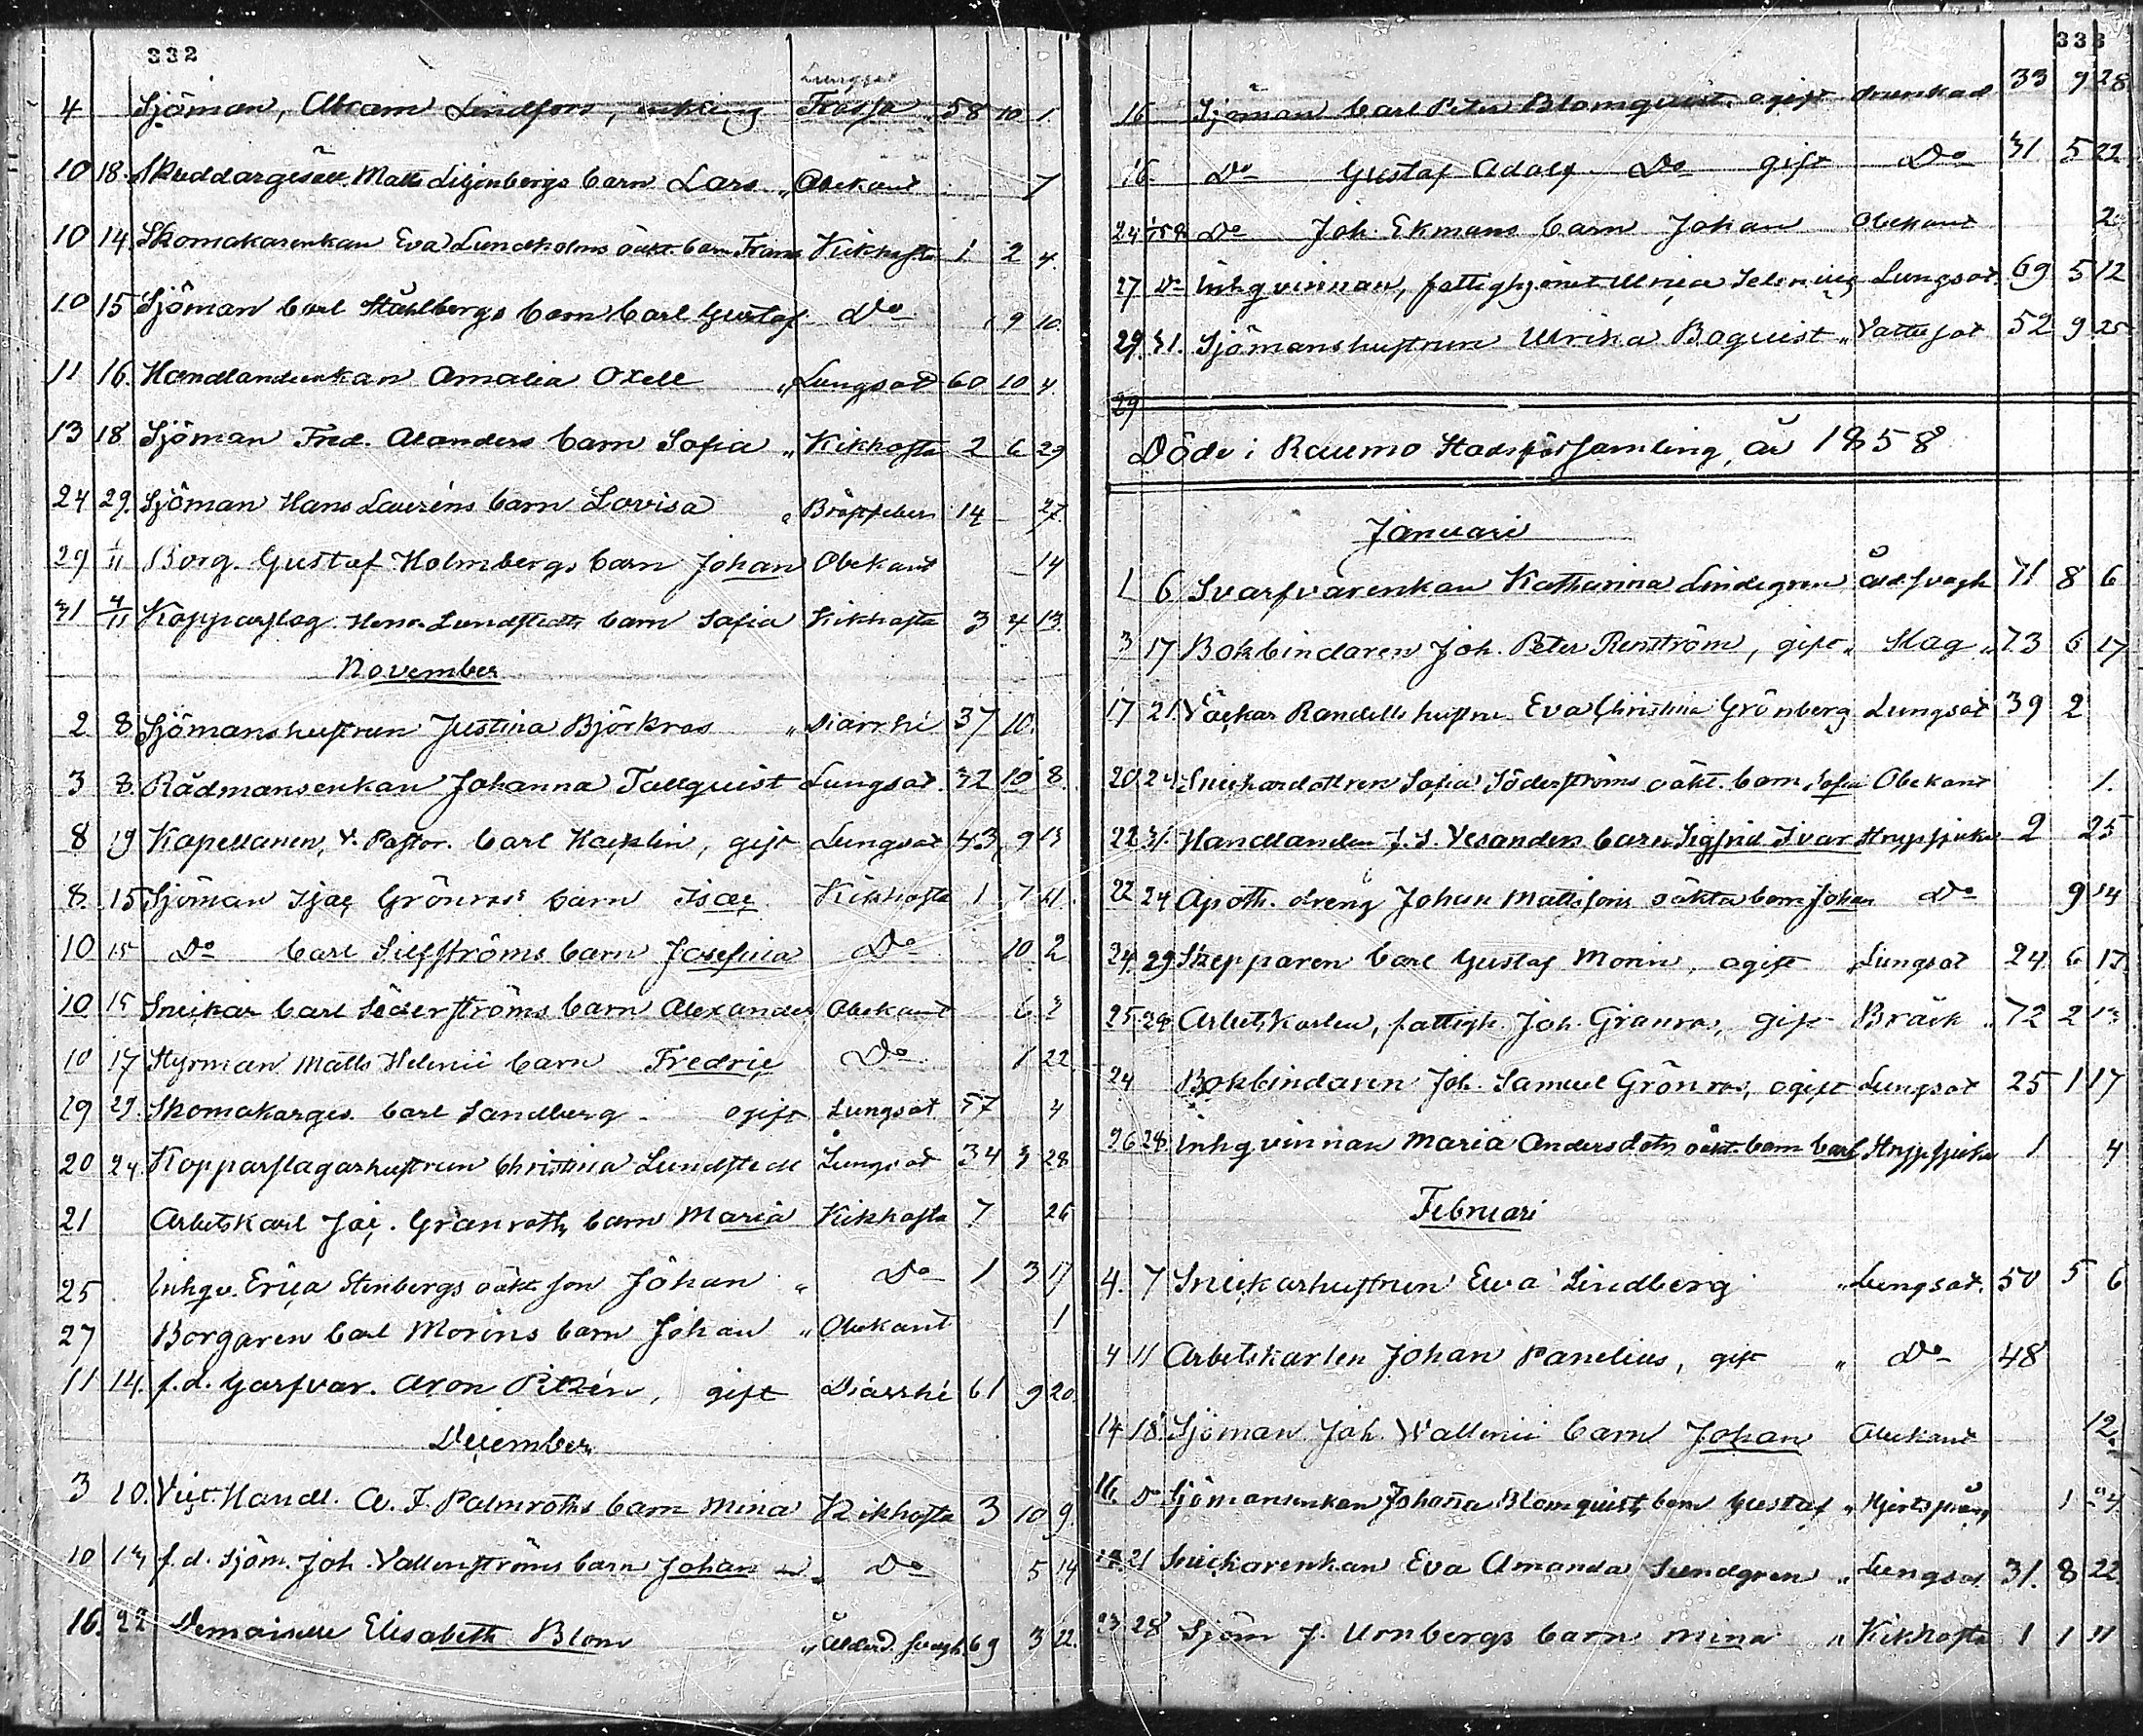 332
Lungsot
4 Sjöman, Abram Lindfors, enkling Frossa 58 10 1
10 18 Skräddargesäll. Matts Liljenbergs barn Lars „ Obekant 7
10 14 Skomakarenkan Eva Lundholms oäkt. barn Frans Kikhosta 1 2 4
10 15 Sjöman Carl Ståhlbergs barn Carl Gustaf Do 9 10
11 16 Handlandeenkan Amalia Oxell „ Lungsot 60 10 4
13 18 Sjöman Fred. Alanders barn Sofia „ Kikhosta 2 6 29
24 29 Sjöman Hans Lauréns barn Lovisa „ 14 – 27
29 1/11 Borg. Gustaf Holmbergs barn Johan Obekant – 14
31 4/11 Kopparslag. Henr. Lundstedts barn Sofia Kikhosta 3 4 13
November
2 8 Sjömanshustrun Justina Björkros „ Diarrhé 37 10
3 8 Rådmansenkan Johanna Tallquist Lungsot 32 10 8
8 19 Kapellanen, V. Pastor. Carl Hacklin, gift Lungsot 43 9 13
8 15 Sjöman Isac Grönroos barn Isac Kikhosta 1 7 21
10 15 Do Carl Silfströms barn Josefina Do 10 2
10 15 Snickar Carl Söderströms barn Alexander Obekant 6 3
10 17 Styrman Matts Helenii barn Fredric Do 1 22
29 29 Skomakarges. Carl Sandberg – ogift Lungsot 57 4
20 24 Kopparslagarhustrun Christina Lundstedt Lungsot 34 3 28
21 Arbetskarl Jac. Granroths barn Maria Kikhosta 7 26
25 Inhqv. Erica Stenbergs oäkt son Johan „ Do 1 3 17
27 Borgaren Carl Morins barn Johan „ Obekant 1
11 14 f.d. Garfvar. Aron Pitzén, gift Diarrhé 61 9 20
December
3 10 Vict. Handl. A. F. Palmroths barn Mina Kikhosta 3 10 9
10 13 f.d. sjöm. Joh. Vallenströms barn Johan „ Do 5 14
16 22 Demoiselle Elisabeth Blom „ Ålderd. svagh. 69 3 22
333
16 Sjöman Carl Peter Blomquist, ogift drunknad 33 9 28
16 Do Gustaf Adolf Do gift Do 31 5 22
24 Do Joh. Ekmans barn Johan Obekant 2
27 Do Inhqvinnan, fattighjonet Ulrica Selenius Lungsot 69 5 12
29 31 Sjömanshustrun Ulrika Boquist „ Vattusot 52 9 25
29
Döde i Raumo Stadsförsamling, år 1858
Januari
1 6 Svarfvarenkan Katharina Lindegren Åld. svagh 71 8 6
3 17 Bokbindaren Joh. Peter Renström, gift „ Slag „ 73 6 17
17 21 Randells hustru Eva Christina Grönberg Lungsot 39 2
20 24 Snickardottren Sofia Söderströms oäkt. barn Sofia Obekant 1
22 31 Handlanden J. S. Vesanders barn Sigfrid Ivar Strypsjuka 2 25
22 24 Apoth. dreng Johan Mattssons oäkta barn Johan Do 9 14
24 29 Skepparen Carl Gustaf Morin, ogift „ Lungsot 24 6 17
25 28 Arbetskarlen, fattigh. Joh. Granroos, gift Bråck „ 72 2 13
24 Bokbindaren Joh. Samuel Grönroos, ogift Lungsot 25 1 17
26 28 Inhqvinnan Maria Andersdotts oäkt. barn Carl Strypsjuka 1 4
Februari
4 7 Snickarhustrun Eva Lindberg „ Lungsot 50 5 6
4 11 Arbetskarlen Johan Panelius, gift „ Do 48
14 18 Sjöman Joh. Vallenii barn Johan Obekant 12
16 Do Sjömansenkan Johanna Blomquists barn Gustaf „ 1 24
18 21 Snickarenkan Eva Amanda Sundgren „ Lungsot 31 8 22
23 28 Sjöm J. Urnbergs barn Mina „ Kikhosta 1 1 11